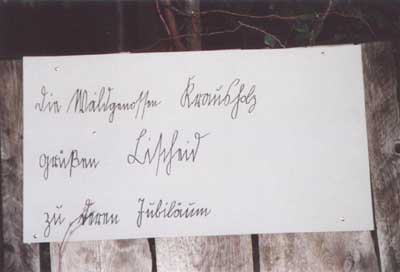 Die Waldgenossen Krausholz
grüßen Lischeid
zu deren Jubiläum